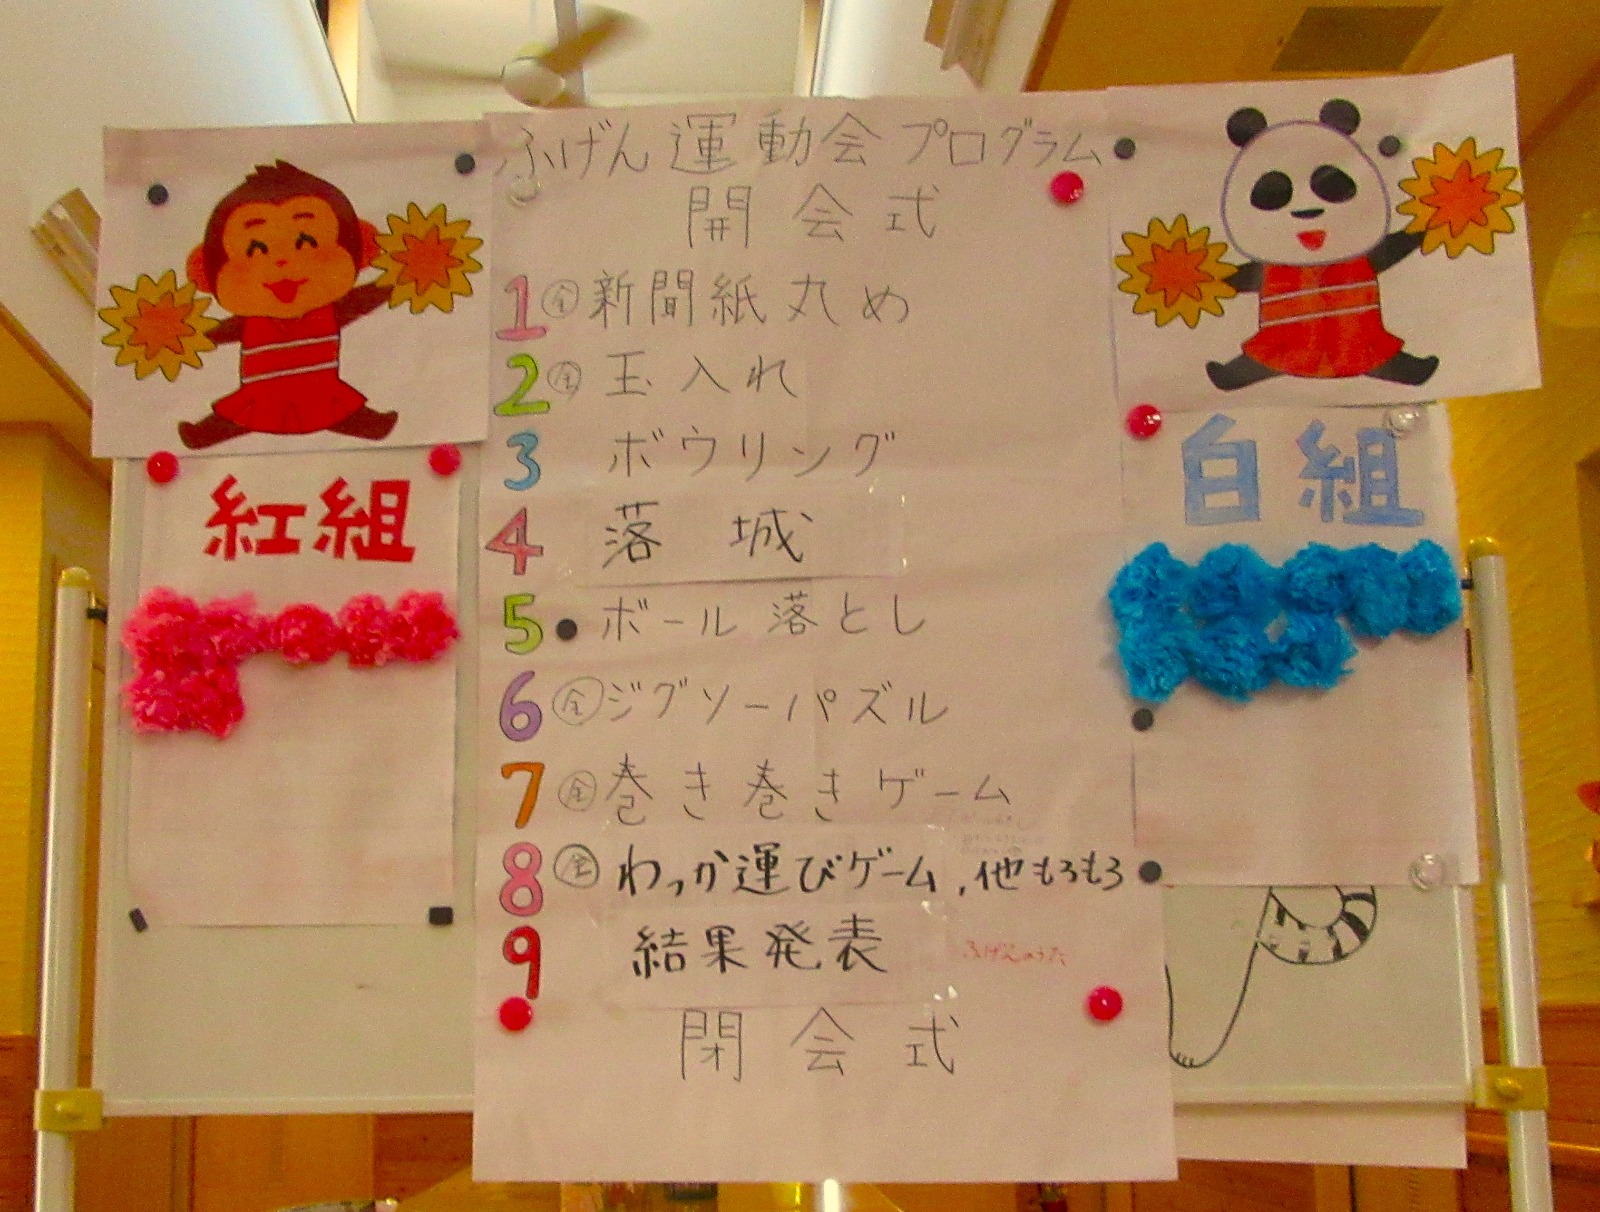 ふげん運動会プログラム
開会式
1 全 新聞紙丸め
2 全 玉入れ
3 ボウリング
4 落城
5 ボール落とし
6 全 ジグソーパズル
7 全 巻き巻きゲーム
8 全 わっか運びゲーム,他もろもろ
9 結果発表 ふげんのうた
閉会式
紅組
白組